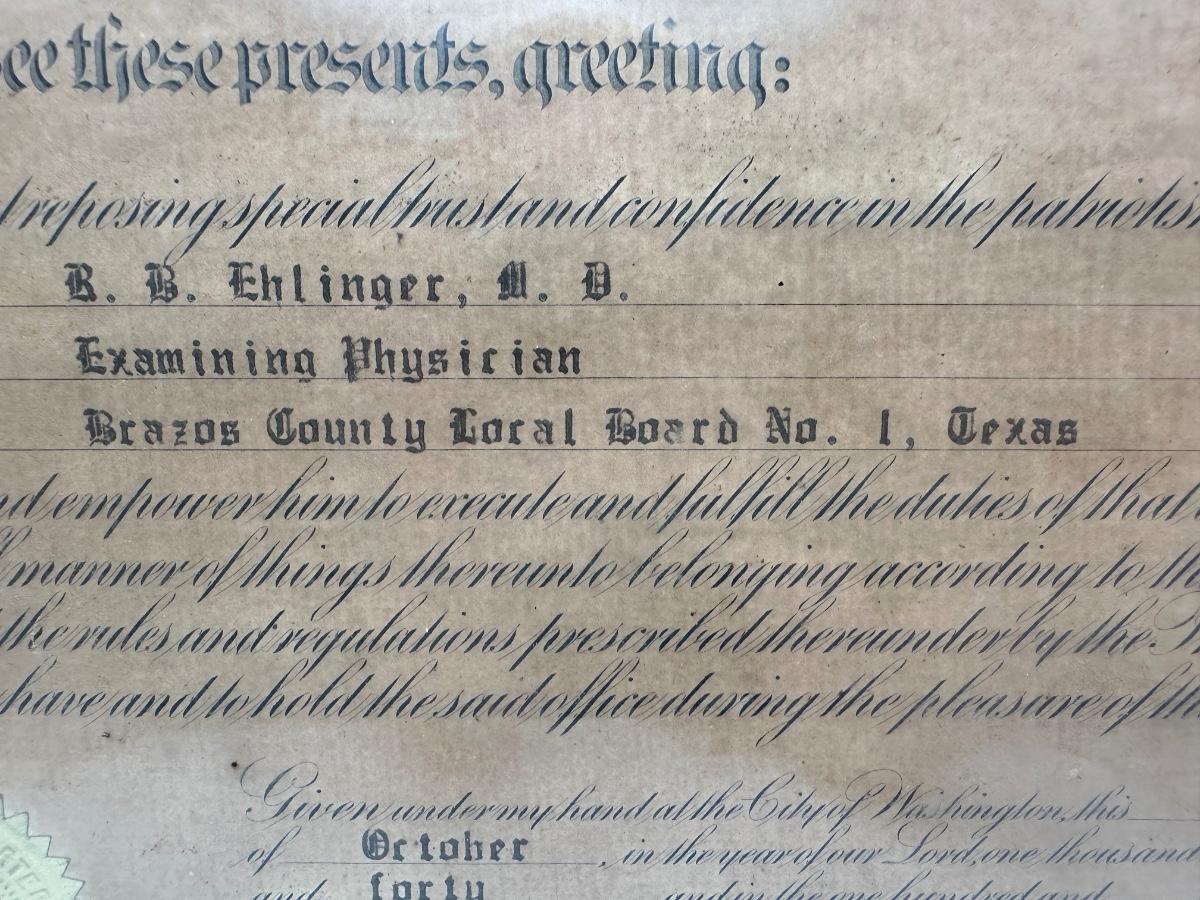 see these presents, greeting:
reposing special trust and confidence in the patriotis
R. B. Ehlinger, M. D.
Examining Physician
Brazos County Local Board No. 1, Texas
nd empower him to execute and fulfill the duties of that
manner of things thereunto belonging according to th
the rules and regulations prescribed thereunder by the
have and to hold the said office during the pleasure of th
Given under my hand at the City of Washington, this
of October, in the year of our Lord, one thousand
and forty and in the one hundred and